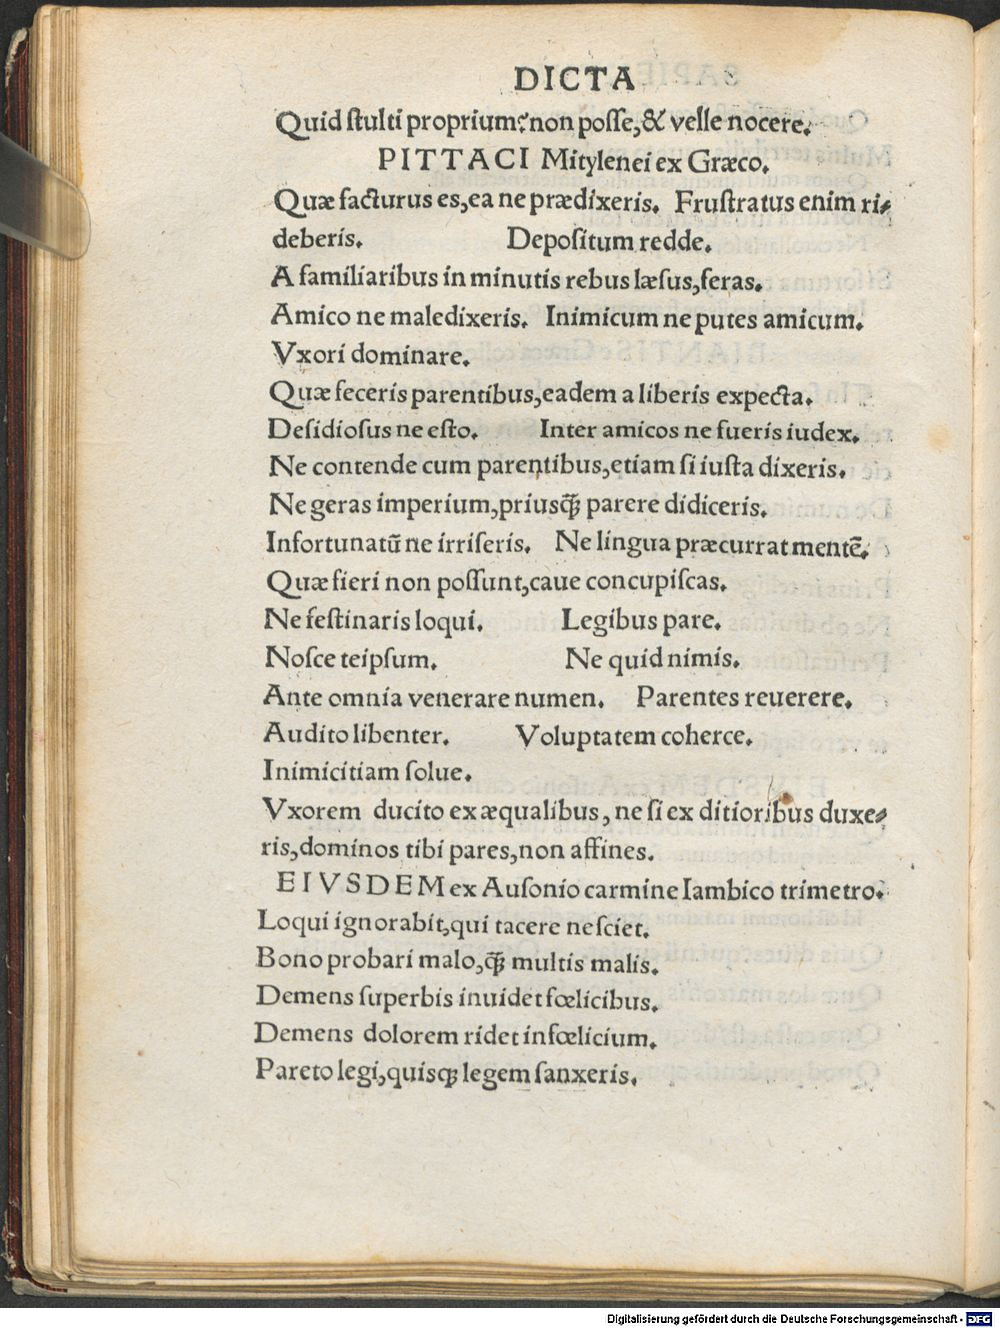 DICTA
Quid ſtulti proprium? non poſſe, & velle nocere.
PITTACI Mitylenei ex Græco.
Quæ facturus es, ea ne prædixeris. Fruſtratus enim ri-
deberis. Depoſitum redde.
A familiaribus in minutis rebus læſus, feras.
Amico ne maledixeris. Inimicum ne putes amicum.
Vxori dominare.
Quæ feceris parentibus, eadem a liberis expecta.
Deſidioſus ne eſto. Inter amicos ne fueris iudex.
Ne contende cum parentibus, etiam ſi iuſta dixeris.
Ne geras imperium, priusq̃ parere didiceris.
Infortunatū ne irriſeris. Ne lingua præcurrat mentē.
Quæ fieri non poſſunt, caue concupiſcas.
Ne feſtinaris loqui. Legibus pare.
Noſce teipſum. Ne quid nimis.
Ante omnia venerare numen. Parentes reuerere.
Audito libenter. Voluptatem coherce.
Inimicitiam ſolue.
Vxorem ducito ex æqualibus, ne ſi ex ditioribus duxe-
ris, dominos tibi pares, non affines.
EIVSDEM ex Auſonio carmine Iambico trimetro.
Loqui ignorabit, qui tacere neſciet.
Bono probari malo, q̃ multis malis.
Demens ſuperbis inuidet fœlicibus.
Demens dolorem ridet infœlicium.
Pareto legi, quisq; legem ſanxeris.
Digitalisierung gefördert durch die Deutsche Forschungsgemeinschaft - DFG